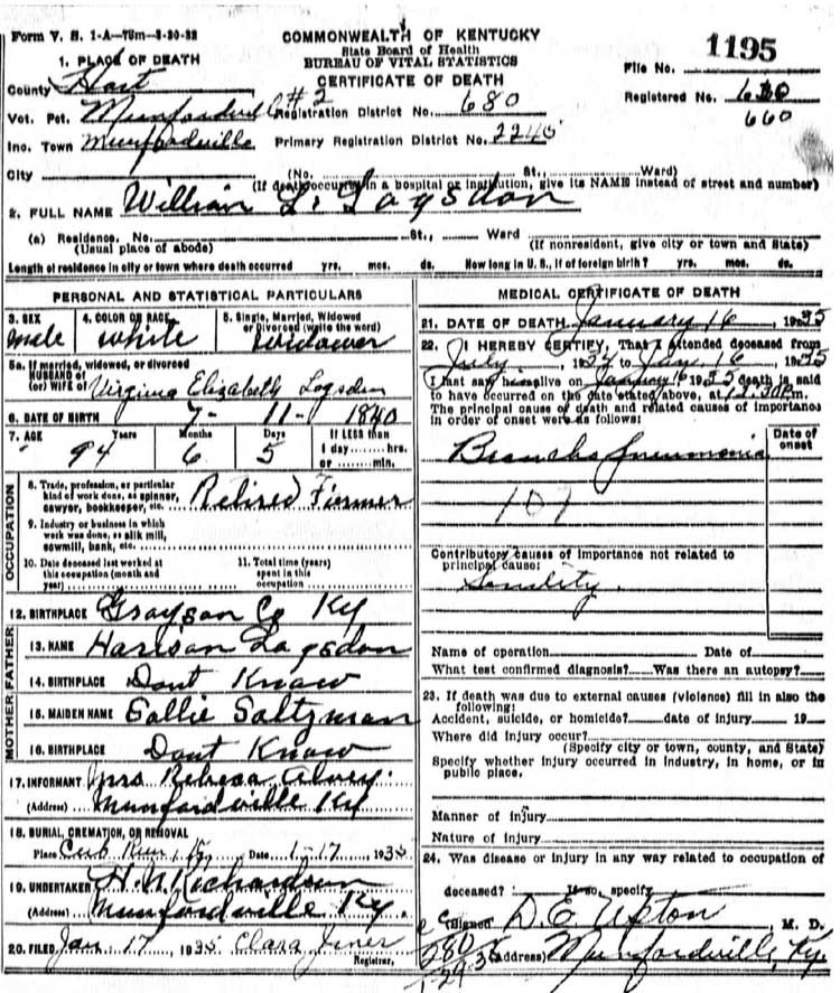 Form V. S. 1-A—75m—8-30-32
COMMONWEALTH OF KENTUCKY
State Board of Health
BUREAU OF VITAL STATISTICS
CERTIFICATE OF DEATH
1195
File No.
Registered No. 660
1. PLACE OF DEATH
County Hart
Vot. Pct. Munfordville #2 Registration District No. 680
Inc. Town Munfordville Primary Registration District No. 2245
City (No. St., Ward)
(If death occurred in a hospital or institution, give its NAME instead of street and number)
2. FULL NAME William L. Logsdon
(a) Residence. No. St., Ward
(Usual place of abode) (If nonresident, give city or town and State)
Length of residence in city or town where death occurred yrs. mos. ds. How long in U. S., if of foreign birth? yrs. mos. ds.
PERSONAL AND STATISTICAL PARTICULARS
3. SEX male
4. COLOR OR RACE white
5. Single, Married, Widowed or Divorced (write the word) Widower
5a. If married, widowed, or divorced
HUSBAND of
(or) WIFE of Virginia Elizabeth Logsdon
6. DATE OF BIRTH 7- 11- 1840
7. AGE Years Months Days If LESS than
94 6 5 1 day hrs.
or min.
OCCUPATION
8. Trade, profession, or particular
kind of work done, as spinner,
sawyer, bookkeeper, etc. Retired Farmer
9. Industry or business in which
work was done, as silk mill,
sawmill, bank, etc.
10. Date deceased last worked at
this occupation (month and
year)
11. Total time (years)
spent in this
occupation
12. BIRTHPLACE Grayson Co Ky
FATHER
13. NAME Harison Logsdon
14. BIRTHPLACE Dont Know
MOTHER
15. MAIDEN NAME Sallie Saltzman
16. BIRTHPLACE Dont Know
17. INFORMANT Mrs Rebeca Alvey
(Address) Munfordville Ky
18. BURIAL, CREMATION, OR REMOVAL
Place Cub Run, Ky Date 1-17 1935
19. UNDERTAKER H. N. Richardson
(Address) Munfordville Ky
20. FILED Jan 17 1935 Clara Jiner
Registrar.
MEDICAL CERTIFICATE OF DEATH
21. DATE OF DEATH January 16, 1935
22. I HEREBY CERTIFY, That I attended deceased from
July, 1934 to Jan. 16, 1935
I last saw him alive on January 16 1935 death is said
to have occurred on the date stated above, at 12:30 P.m.
The principal cause of death and related causes of importance
in order of onset were as follows:
Date of onset
Broncho Pneumonia
107
Contributory causes of importance not related to
principal cause:
Senility
Name of operation Date of
What test confirmed diagnosis? Was there an autopsy?
23. If death was due to external causes (violence) fill in also the
following:
Accident, suicide, or homicide? date of injury 19
Where did injury occur?
(Specify city or town, county, and State)
Specify whether injury occurred in industry, in home, or in
public place.
Manner of injury
Nature of injury
24. Was disease or injury in any way related to occupation of
deceased? If so, specify
(Signed) D. E. Upton M. D.
(Address) Munfordville, Ky.